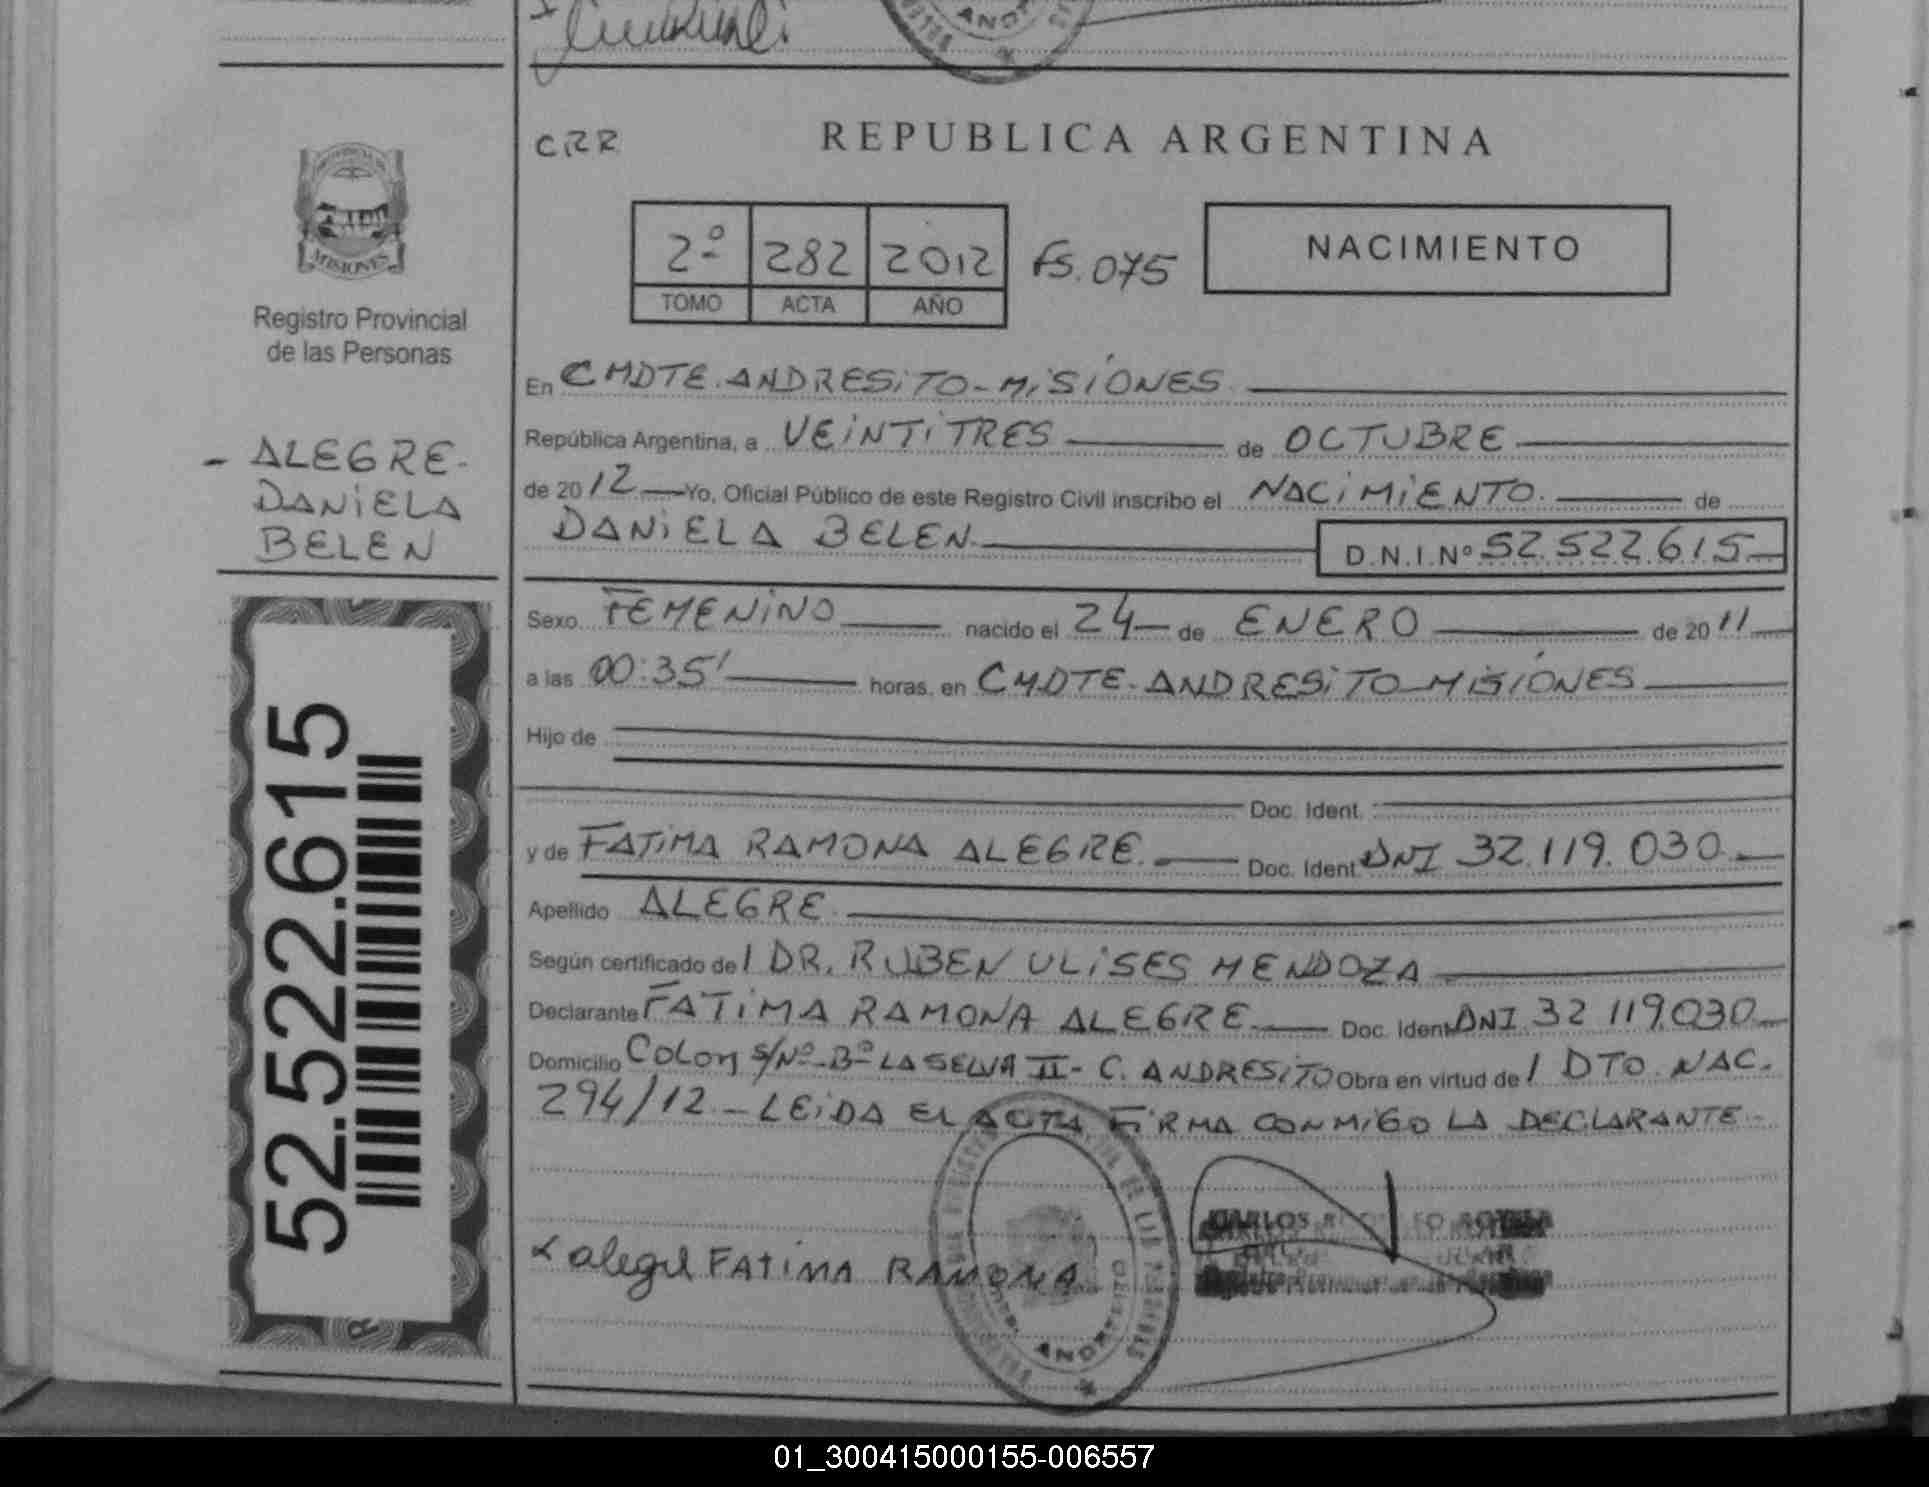 CRR
REPUBLICA ARGENTINA
2º 282 2012 Fs. 075
TOMO ACTA AÑO
NACIMIENTO
MISIONES
Registro Provincial
de las Personas
- ALEGRE-
DANiELA
BELEN
52.522.615
R
En CMDTE. ANDRESiTO - MiSIONES
República Argentina, a VEiNTiTRES de OCTUBRE
de 2012 Yo, Oficial Público de este Registro Civil inscribo el NACiMiENTO. de
DANiELA BELEN. D.N.I.Nº 52.522.615
Sexo FEMENiNO nacido el 24 de ENERO de 2011
a las 00:35' horas, en CMDTE. ANDRESiTO - MiSiONES
Hijo de
Doc. Ident.
y de FATiMA RAMONA ALEGRE. Doc. Ident. DNI 32.119.030
Apellido ALEGRE
Según certificado del DR. RUBEN ULiSES MENDOZA
Declarante FATiMA RAMONA ALEGRE Doc. Ident. DNI 32 119.030
Domicilio COLON S/Nº - Bº LA SELVA II - C. ANDRESiTO Obra en virtud del DTO. NAC.
294/12. - LEiDA EL ACTA, FiRMA CONMiGO LA DECLARANTE -
x alegre FATiMA RAMONA
CARLOS
ANDRESITO
01_300415000155-006557